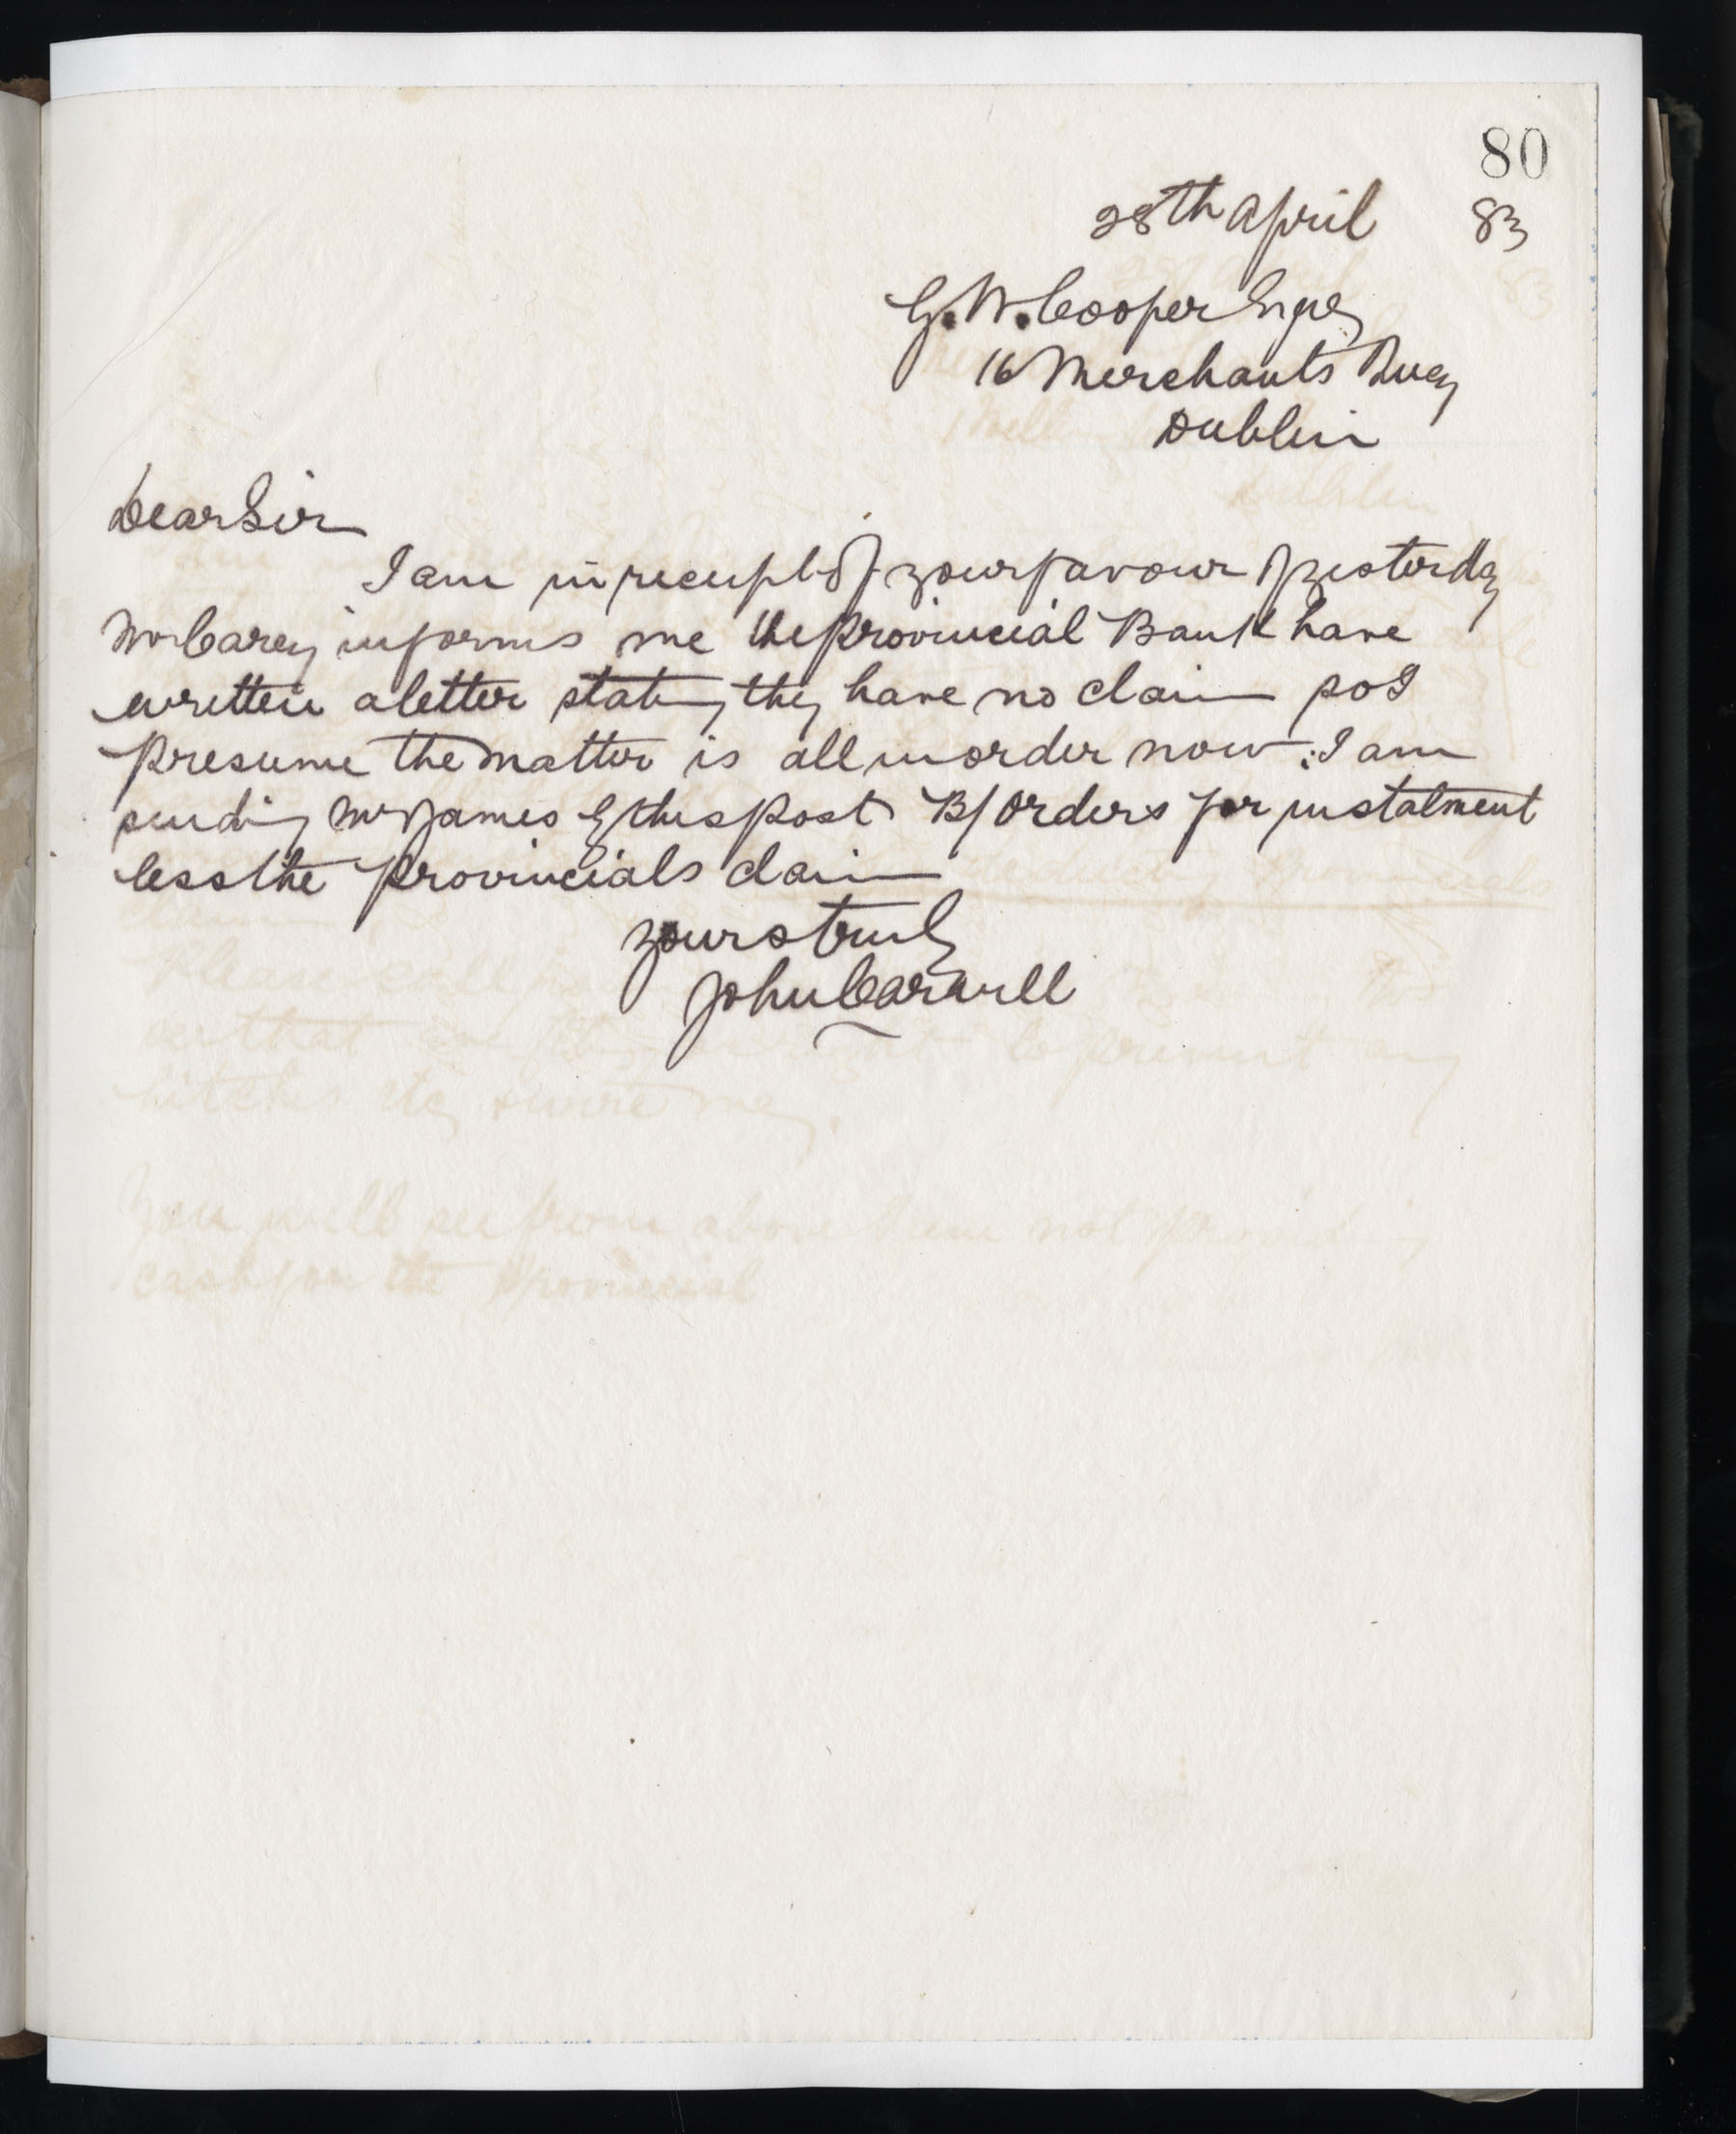 80
28th April 83
G. W. Cooper Esqre
16 Merchants Quay
Dublin
Dear Sir
I am in receipt of your favour of yesterday
Mr Carey informs me the Provincial Bank have
written a letter stating they have no claim so I
presume the matter is all in order now: I am
sending Mr James by this post B/Orders for instalment
less the Provincials claim
Yours truly
John Carvill